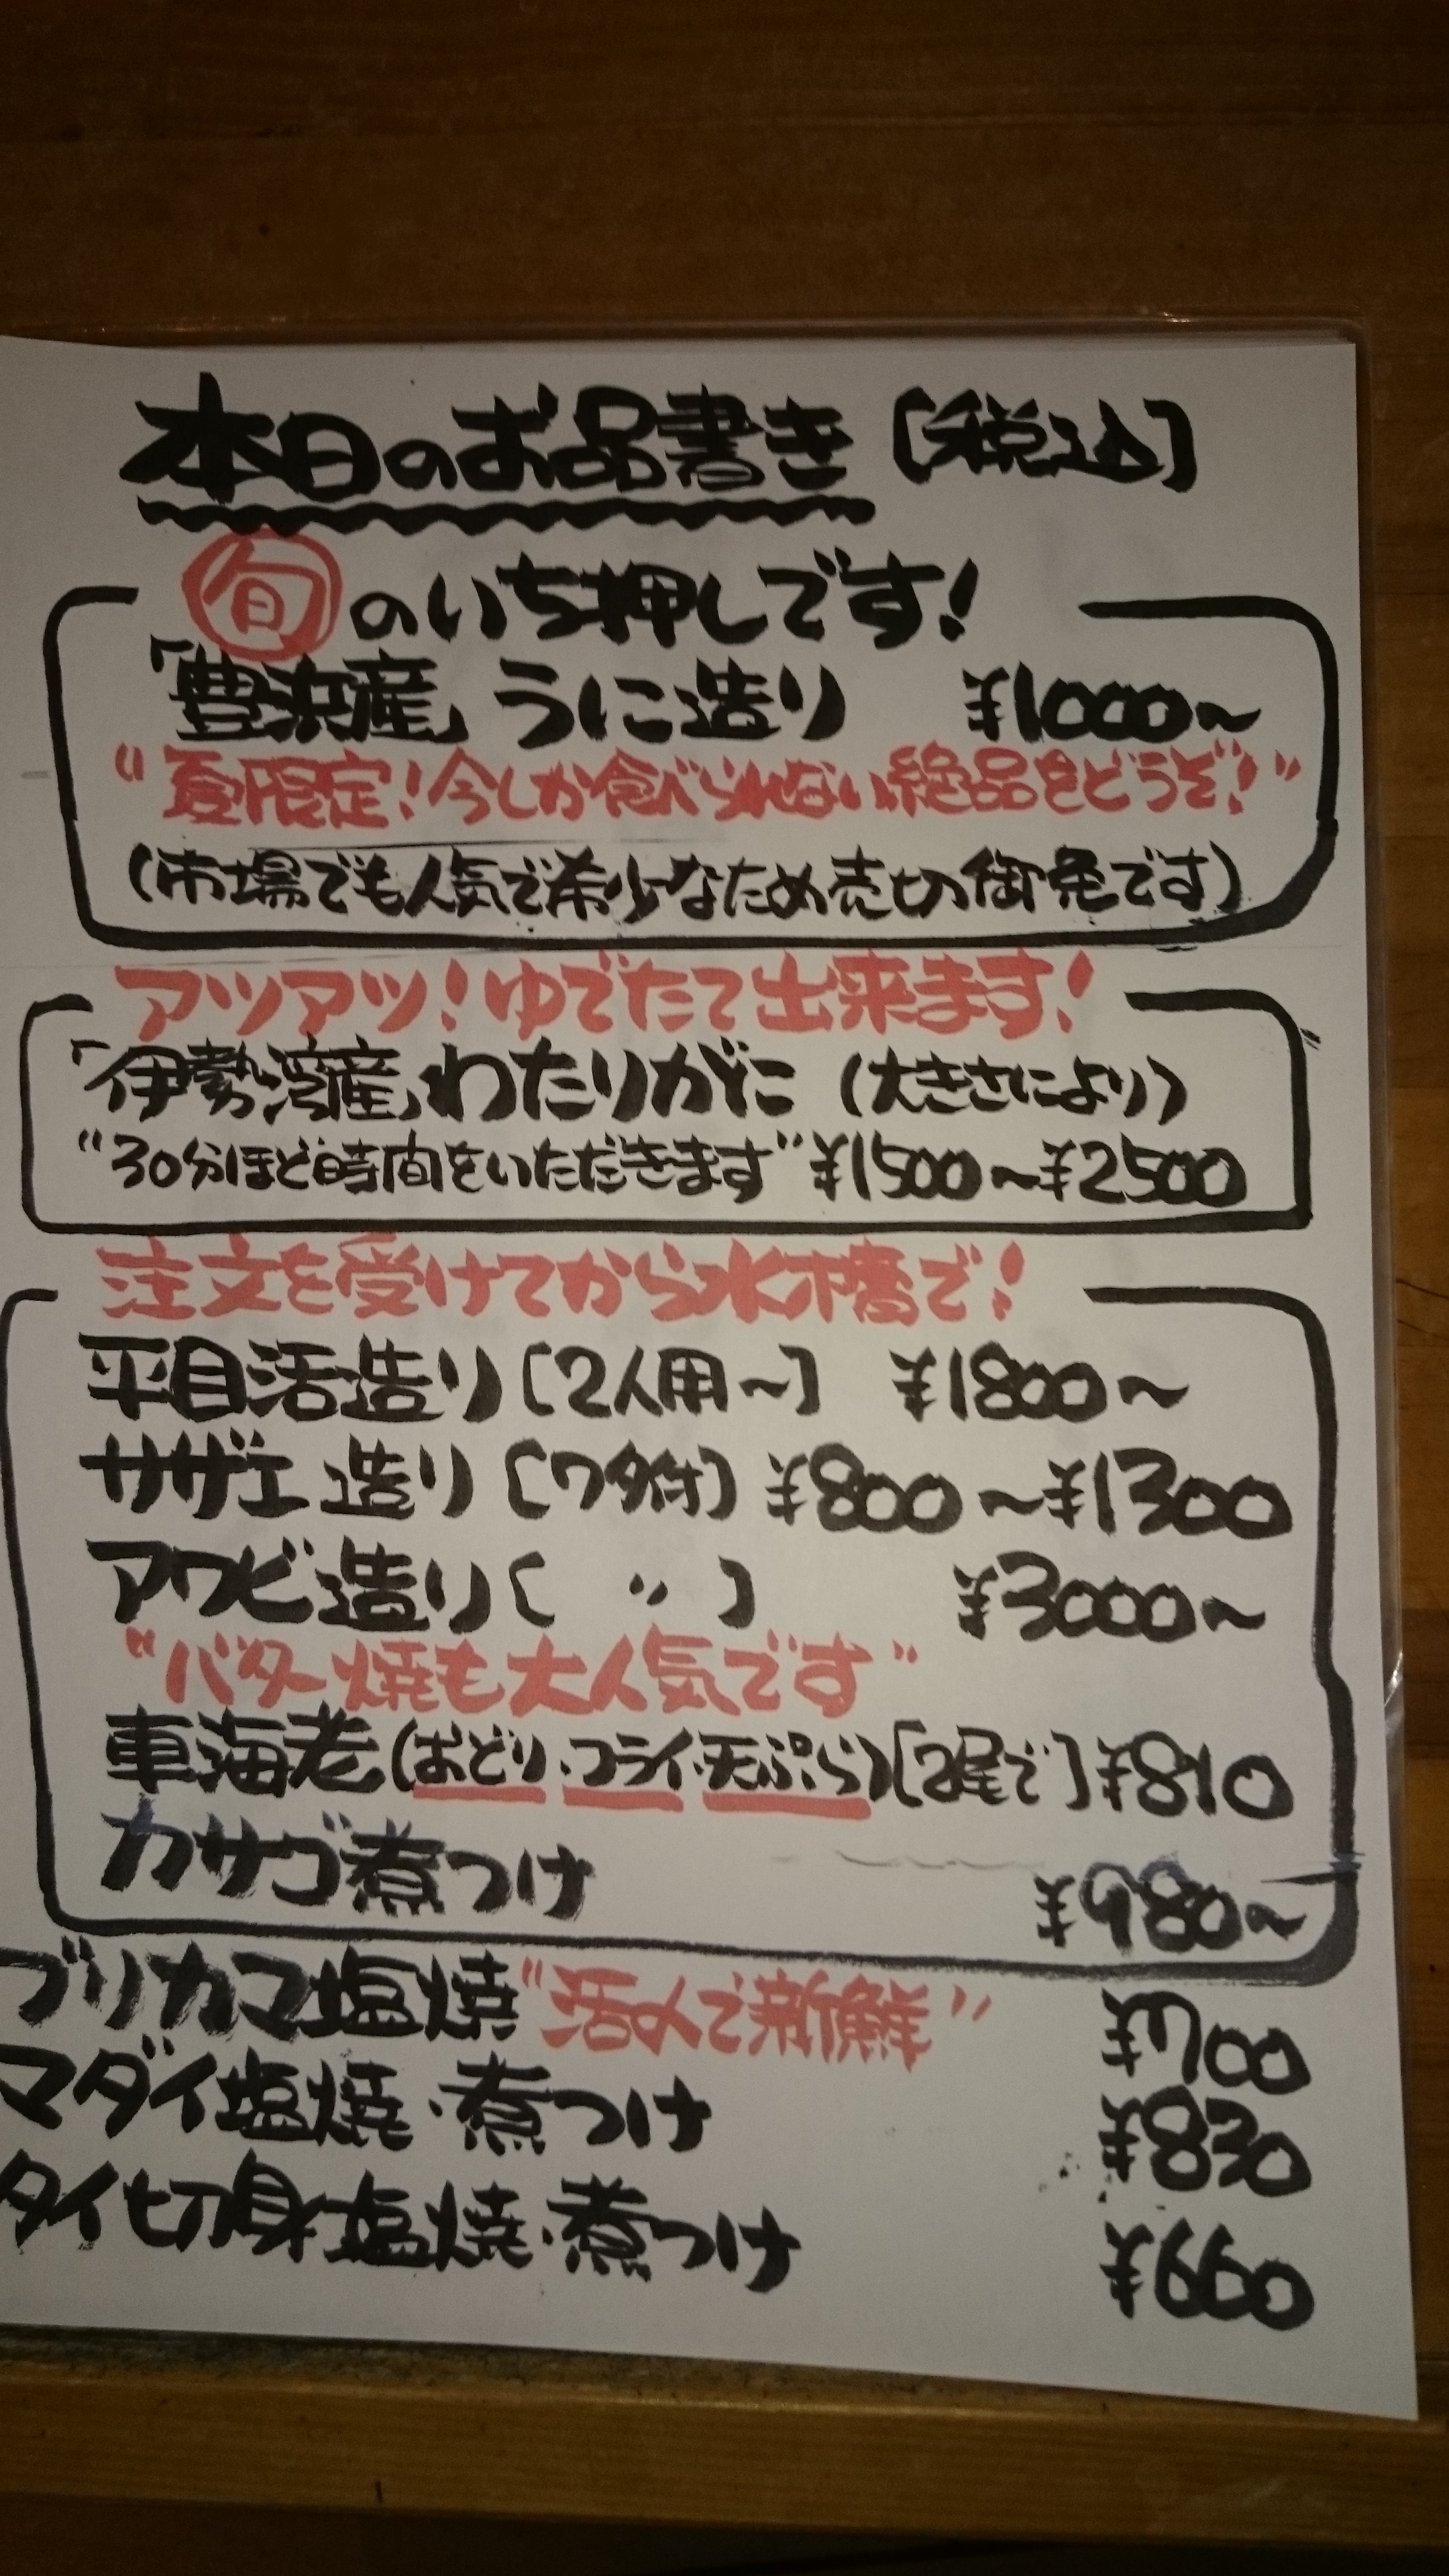 本日のお品書き［税込］
旬のいち押しです！
「豊浜産」うに造り ¥1000〜
“夏限定！今しか食べられない絶品をどうぞ！”
（市場でも人気で希少なため売切御免です）
アツアツ！ゆでたて出来ます！
「伊勢湾産」わたりがに（大きさにより）
“30分ほど時間をいただきます” ¥1500〜¥2500
注文を受けてから水槽で！
平目活造り［2人用〜］ ¥1800〜
サザエ造り［ワタ付］ ¥800〜¥1300
アワビ造り［ 〃 ］ ¥3000〜
“バター焼も大人気です”
車海老（おどり・フライ・天ぷら）［2尾で］¥810
カサゴ煮つけ ¥980〜
ブリカマ塩焼“活〆で新鮮” ¥700
マダイ塩焼・煮つけ ¥850
タイ切身塩焼・煮つけ ¥990